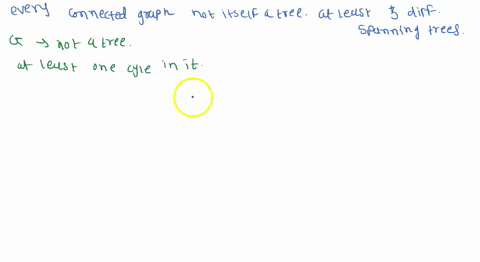 every connected graph not itself a tree. at least 3 diff.
spanning trees.
G → not a tree.
at least one cycle in it.